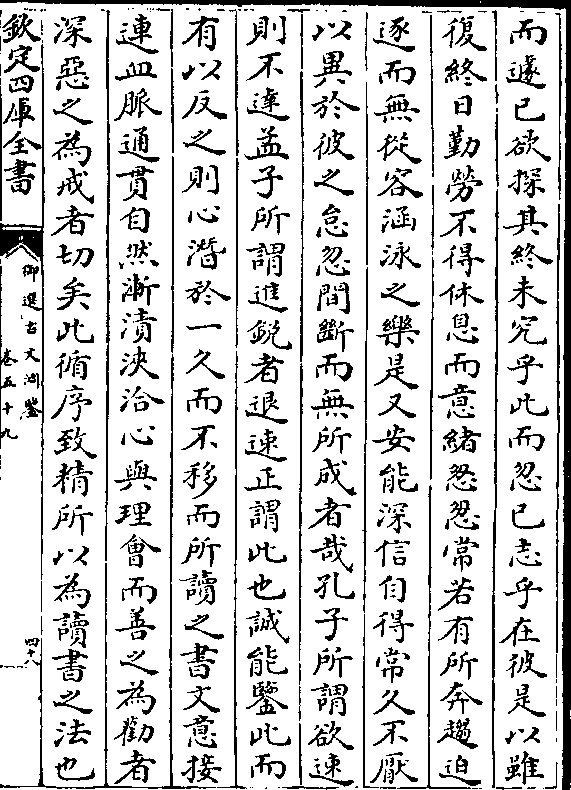 而遽已欲探其終未究乎此而忽已志乎在彼是以雖
復終日勤勞不得休息而意緒怱怱常若有所奔趨迫
逐而無從容涵泳之樂是又安能深信自得常久不厭
以異於彼之怠忽間斷而無所成者哉孔子所謂欲速
則不達孟子所謂進鋭者退速正謂此也誠能鑒此而
有以反之則心潛於一久而不移而所讀之書文意接
連血脈通貫自然漸漬浹洽心與理會而善之為勸者
深惡之為戒者切矣此循序致精所以為讀書之法也
欽定四庫全書
御選古文淵鑒
卷五十九
四十八